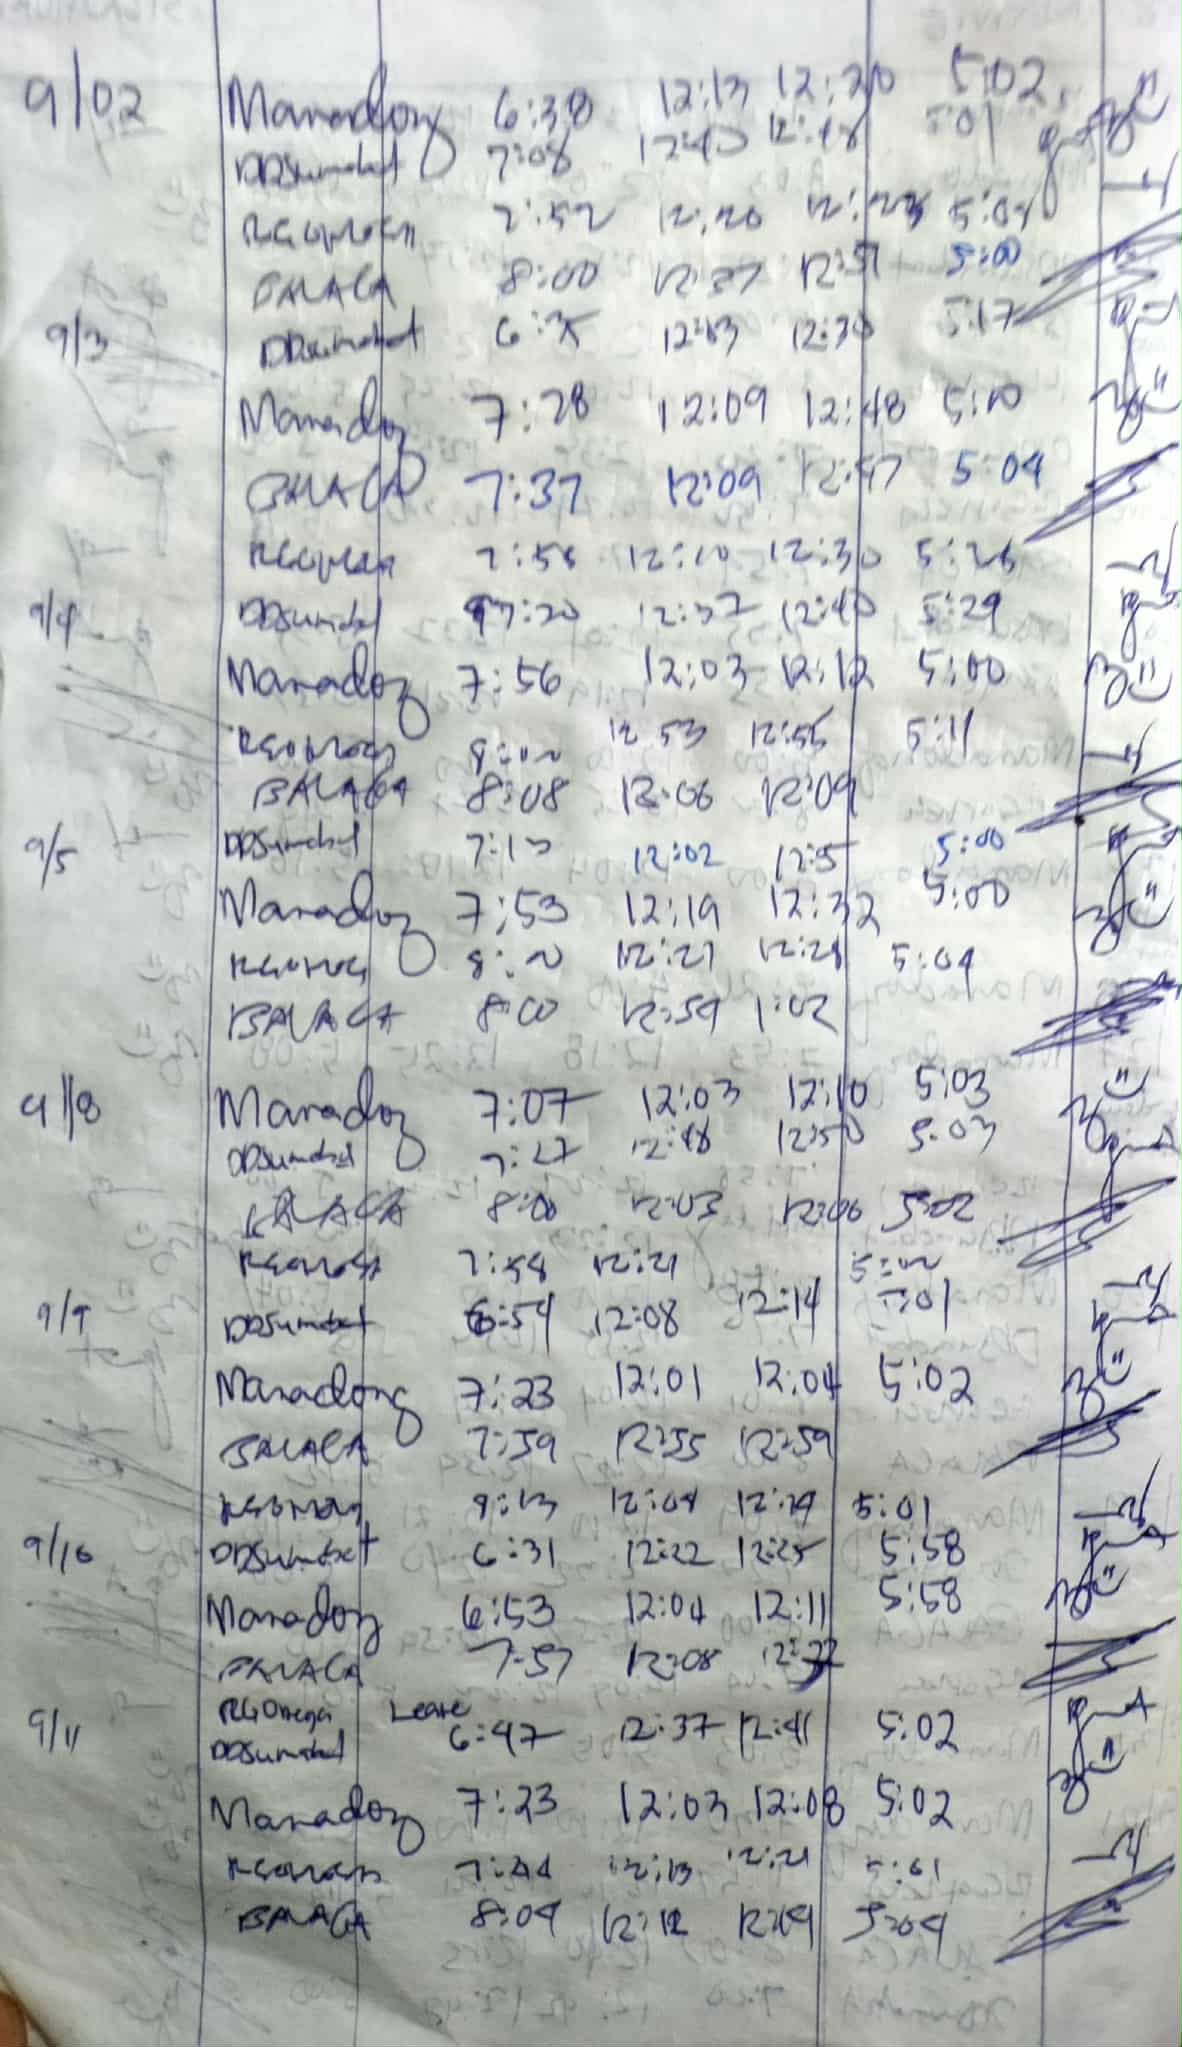 9/02 Manadong 6:38 12:13 12:20 5:02
DDSumabat 7:08 12:40 12:48 5:01
RGOmega 7:52 12:20 12:23 5:04
BALAGA 8:00 12:37 12:51 5:00
9/3 DDSumabat 6:35 12:13 12:30 5:17
Manadong 7:28 12:09 12:48 5:10
BALAGA 7:37 12:09 12:47 5:04
RGOmega 7:58 12:10 12:30 5:26
9/4 DDSumabat 7:20 12:37 12:40 5:29
Manadong 7:56 12:03 12:12 5:00
RGOmega 8:00 12:53 12:55 5:11
BALAGA 8:08 12:06 12:09
9/5 DDSumabat 7:13 12:02 12:5 5:00
Manadong 7:53 12:19 12:32 5:00
RGOmega 8:20 12:27 12:28 5:04
BALAGA 8:00 12:59 1:02
9/8 Manadong 7:07 12:03 12:10 5:03
DDSumabat 7:27 12:48 12:50 5:03
BALAGA 8:00 12:03 12:06 5:02
RGOmega 7:58 12:21 5:00
9/9 DDSumabat 6:54 12:08 12:14 5:01
Manadong 7:23 12:01 12:04 5:02
BALAGA 7:59 12:55 12:59
RGOmega 8:13 12:04 12:19 5:01
9/10 DDSumabat 6:31 12:22 12:25 5:58
Manadong 6:53 12:04 12:11 5:58
BALAGA 7:57 12:08
RGOmega Leave
9/11 DDSumabat 6:47 12:37 12:41 5:02
Manadong 7:23 12:03 12:08 5:02
RGOmega 7:44 12:13 12:21 5:01
BALAGA 8:04 12:12 12:14 5:04